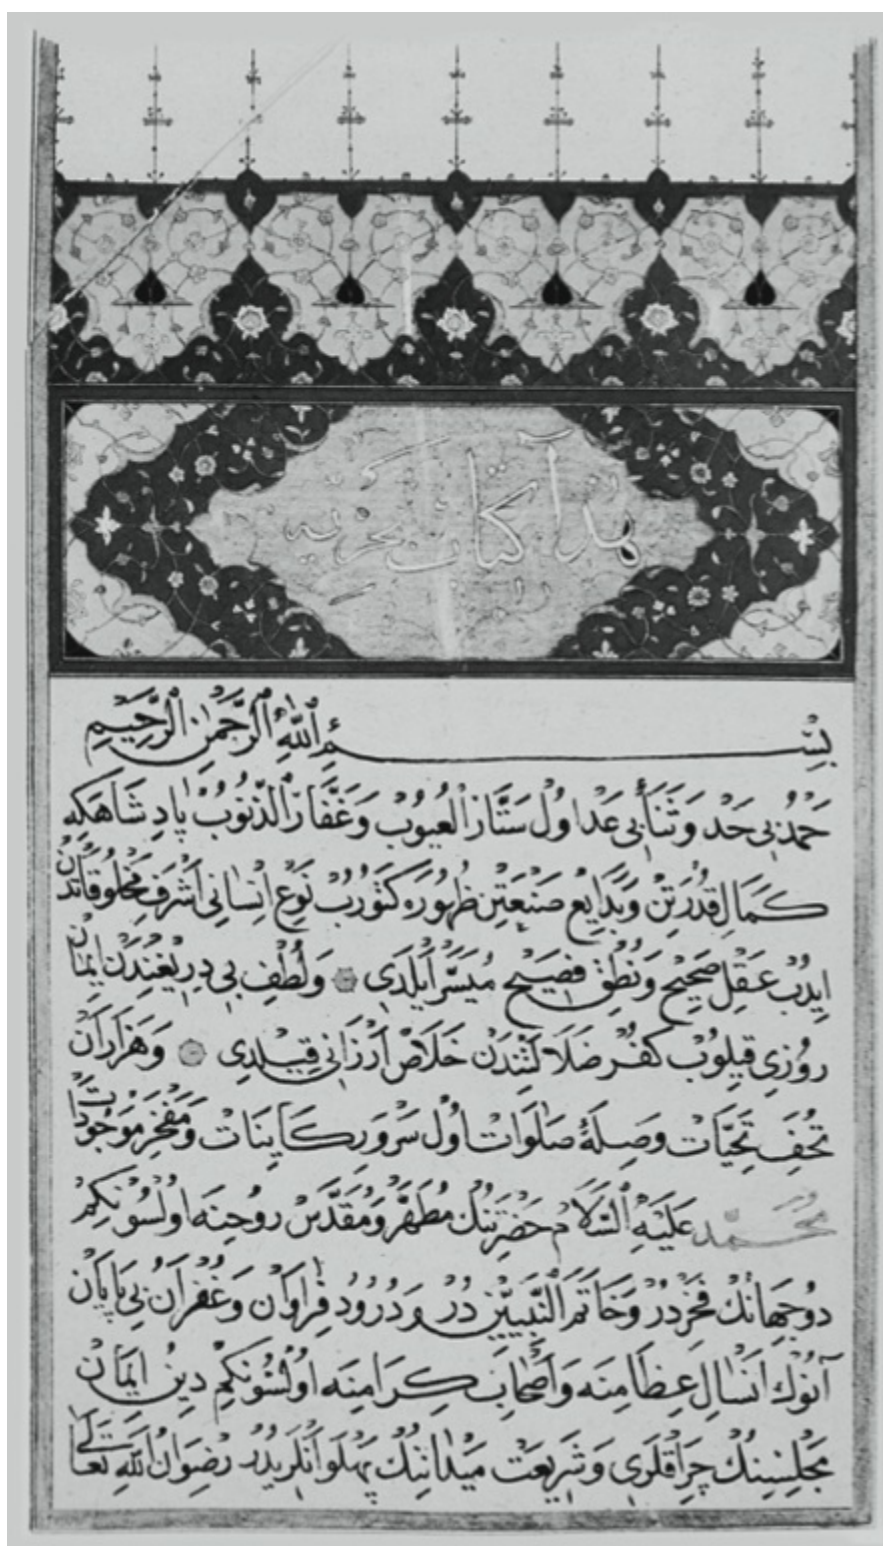 هذا كتاب بحريه
بِسْمِ اللهِ الرَّحْمٰنِ الرَّحِيمِ
حَمْدِ بِى حَدْ وَثَنَاىِٔ بِى عَدْ اول سَتَّارُ الْعُيُوبْ وَغَفَّارُ الذُّنُوبْ پَادِشَاهَكِه
كَمَالِ قُدْرَتِنْ وَبَدَايِعِ صَنْعَتِنْ ظُهُورَه كَتُورُبْ نَوْعِ اِنْسَانِى اَشْرَفِ مَخْلُوقَاتْدَنْ
ايدُبْ عَقْلِ صَحِيحْ وَنُطْقِ فَصِيحْ مُيَسَّرْ اَيْلَدِى وَلُطْفِ بِى دِرِيغِنْدَنْ اِيمَانْ
رُوزِى قِيلوُبْ كُفْر ضَلَالَتِنْدَنْ خَلَاصْ اَرْزَانِى قِيلْدِى وَهَزَارَانْ
تُحَفِ تَحِيَّاتْ وَصِلَهٔ صَلَوَاتْ اُولْ سَرْوَرِ كَايِنَاتْ وَمَفْخَرِ مَوْجُودَاتْ
مُحَمَّدْ عَلَيْهِ السَّلَامْ حَضْرَتِنُكْ مُطَهَّرْ وَمُقَدَّسْ رُوحِنَه اولْسُونكِمْ
دوُجَهَانُكْ فَخْرِدُرْ وَخَاتَمَ النَّبِيِّينْ دُرْ وَدُرُودِ فِرَاوَانْ وَغُفْرَانِ بِى پَايَانْ
آنُوكْ اَنْسَالِ عِظَامِنَه وَاَصْحَابِ كِرَامِنَه اولْسُونكِمْ دِينِ اِيمَانْ
مَجْلِسِنُكْ چِرَاقْلَرِى وَشَرِيعَتْ مَيْدَانِنُكْ پَهْلَوَانْلَرِيدُرْ رِضْوَانُ اللهِ تَعَالَى